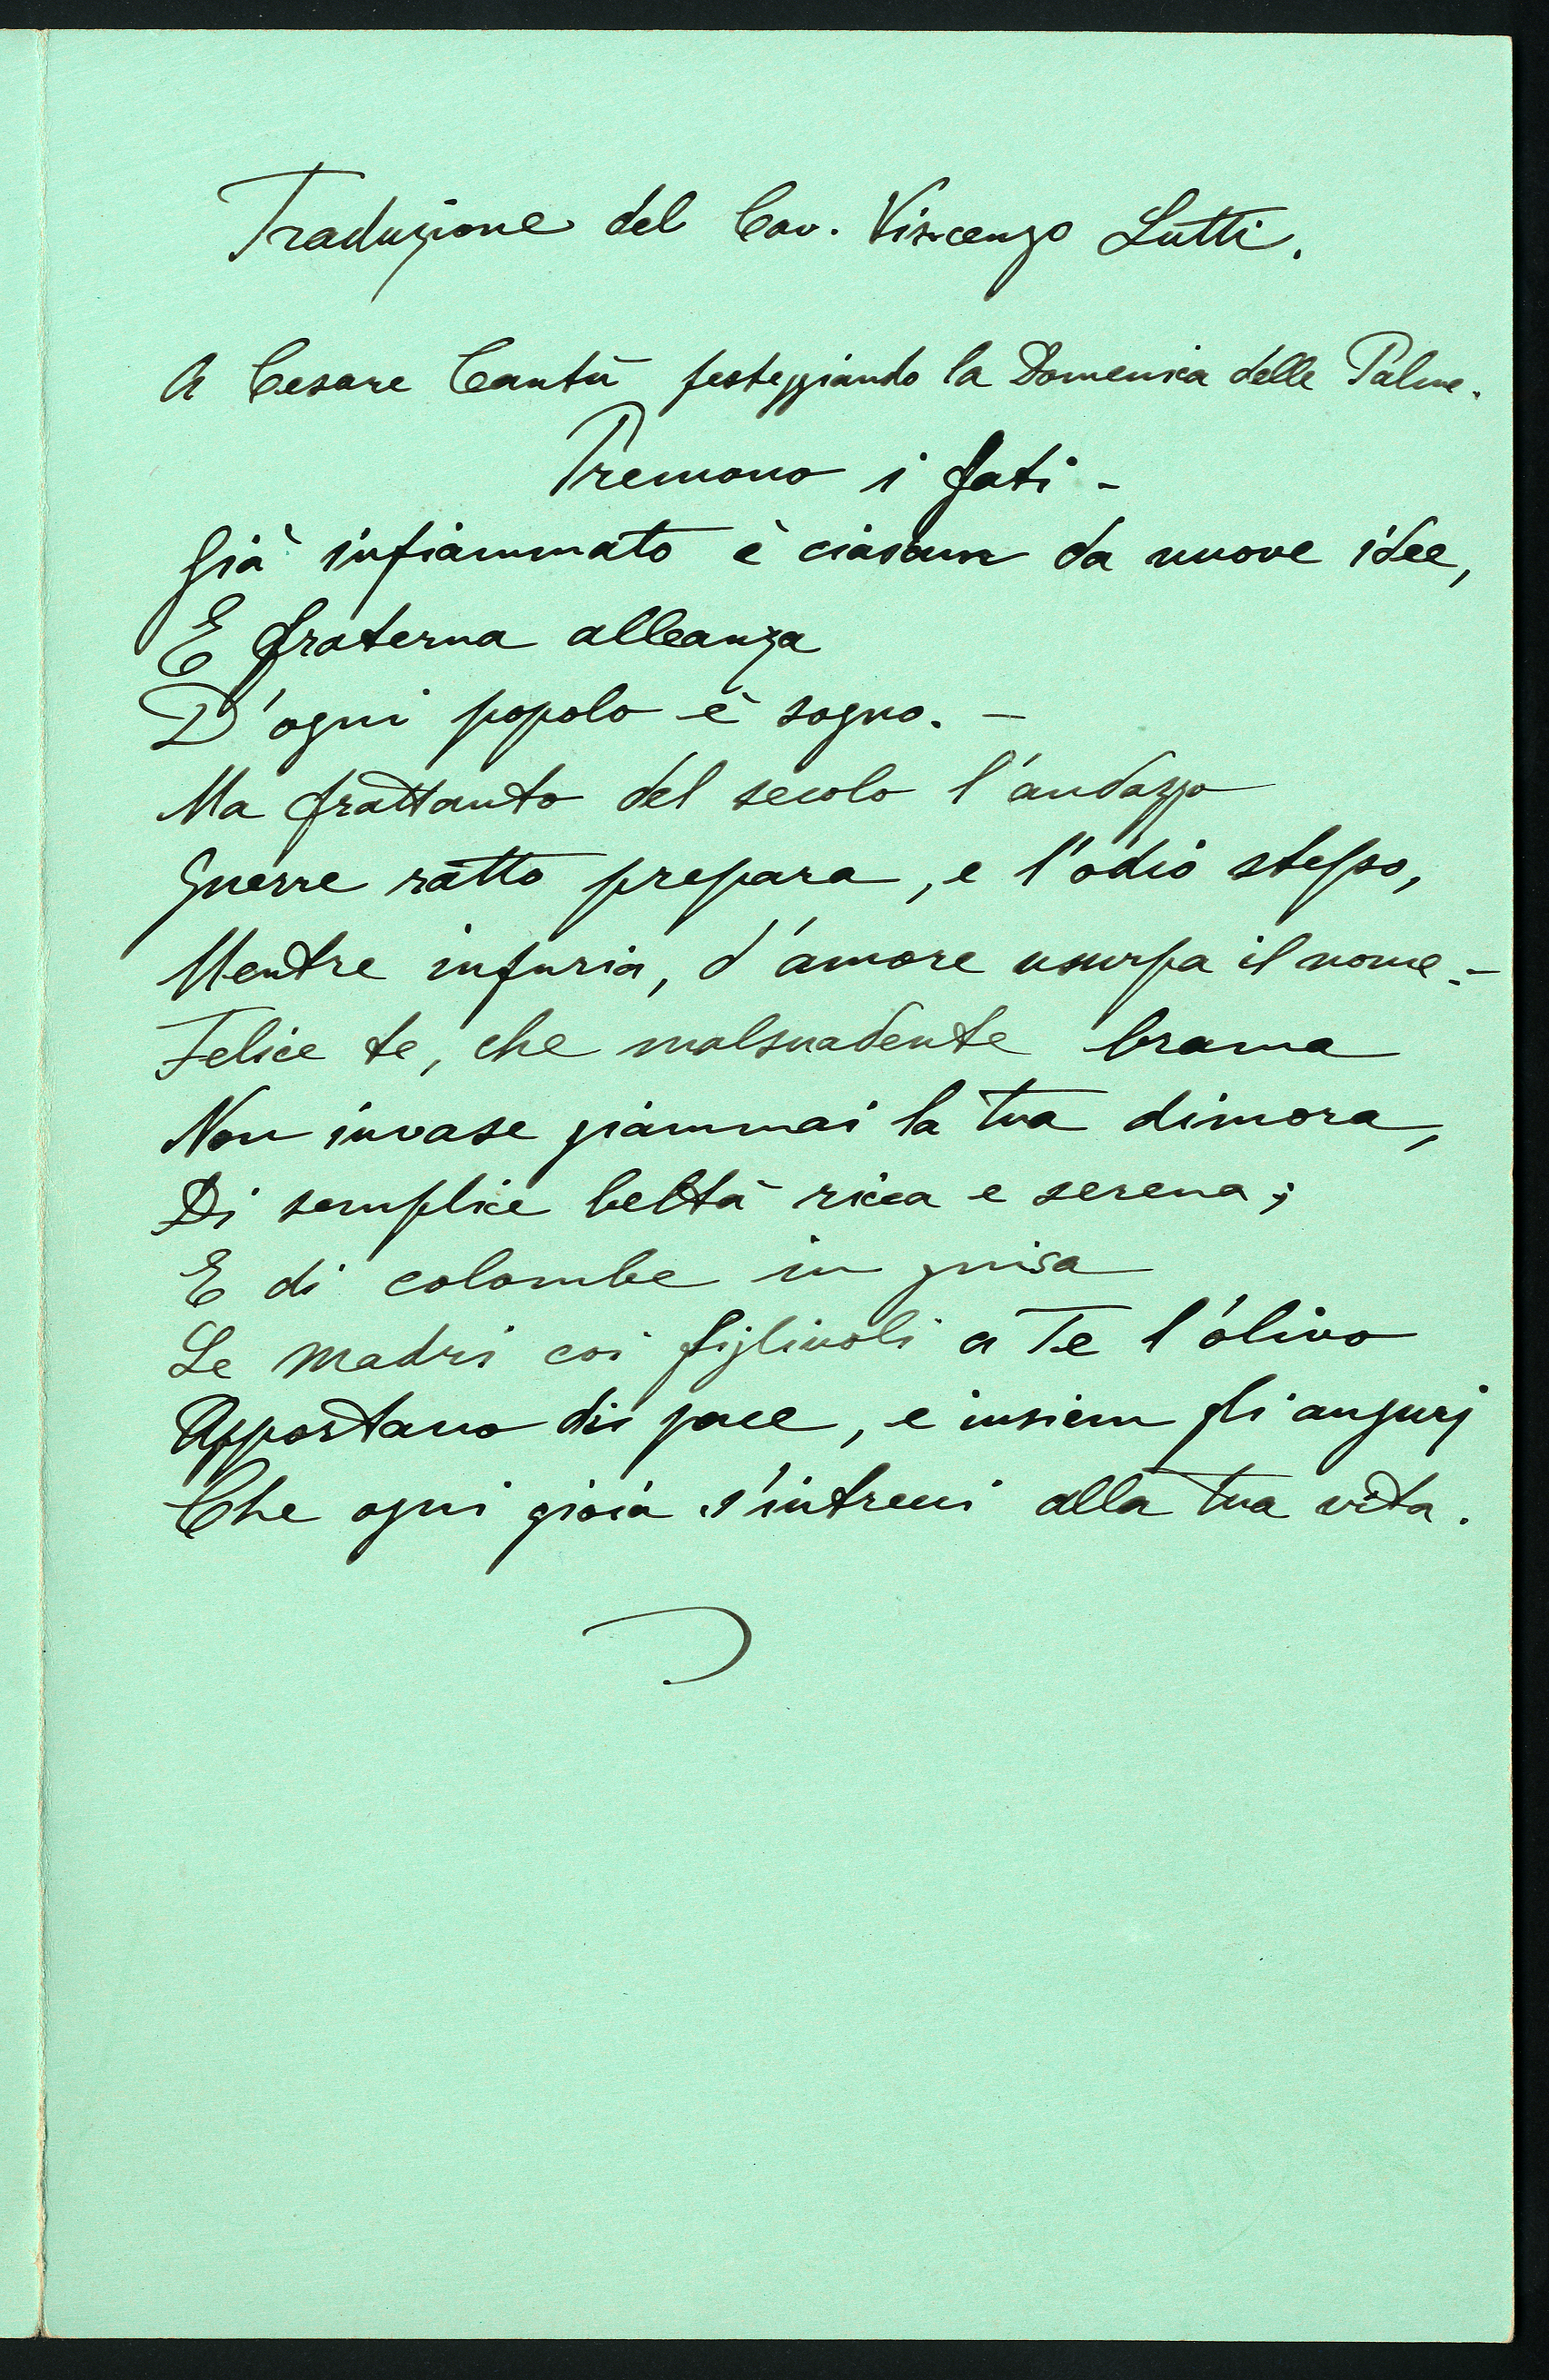 Traduzione del Cav. Vincenzo Lutti.
A Cesare Cantù festeggiando la Domenica delle Palme.
Premono i fati -
Già infiammato è ciascun da nuove idee,
E fraterna alleanza
D'ogni popolo è sogno. -
Ma frattanto del secolo l'andazzo
Guerre ratto prepara, e l'odio stesso,
Mentre infuria, d'amore usurpa il nome. -
Felice te, che malsuadente brama
Non invase giammai la tua dimora,
Di semplice beltà ricca e serena;
E di colombe in guisa
Le madri coi figliuoli a Te l'olivo
Apportano di pace, e insiem gli augurj
Che ogni gioia s'intrecci alla tua vita.